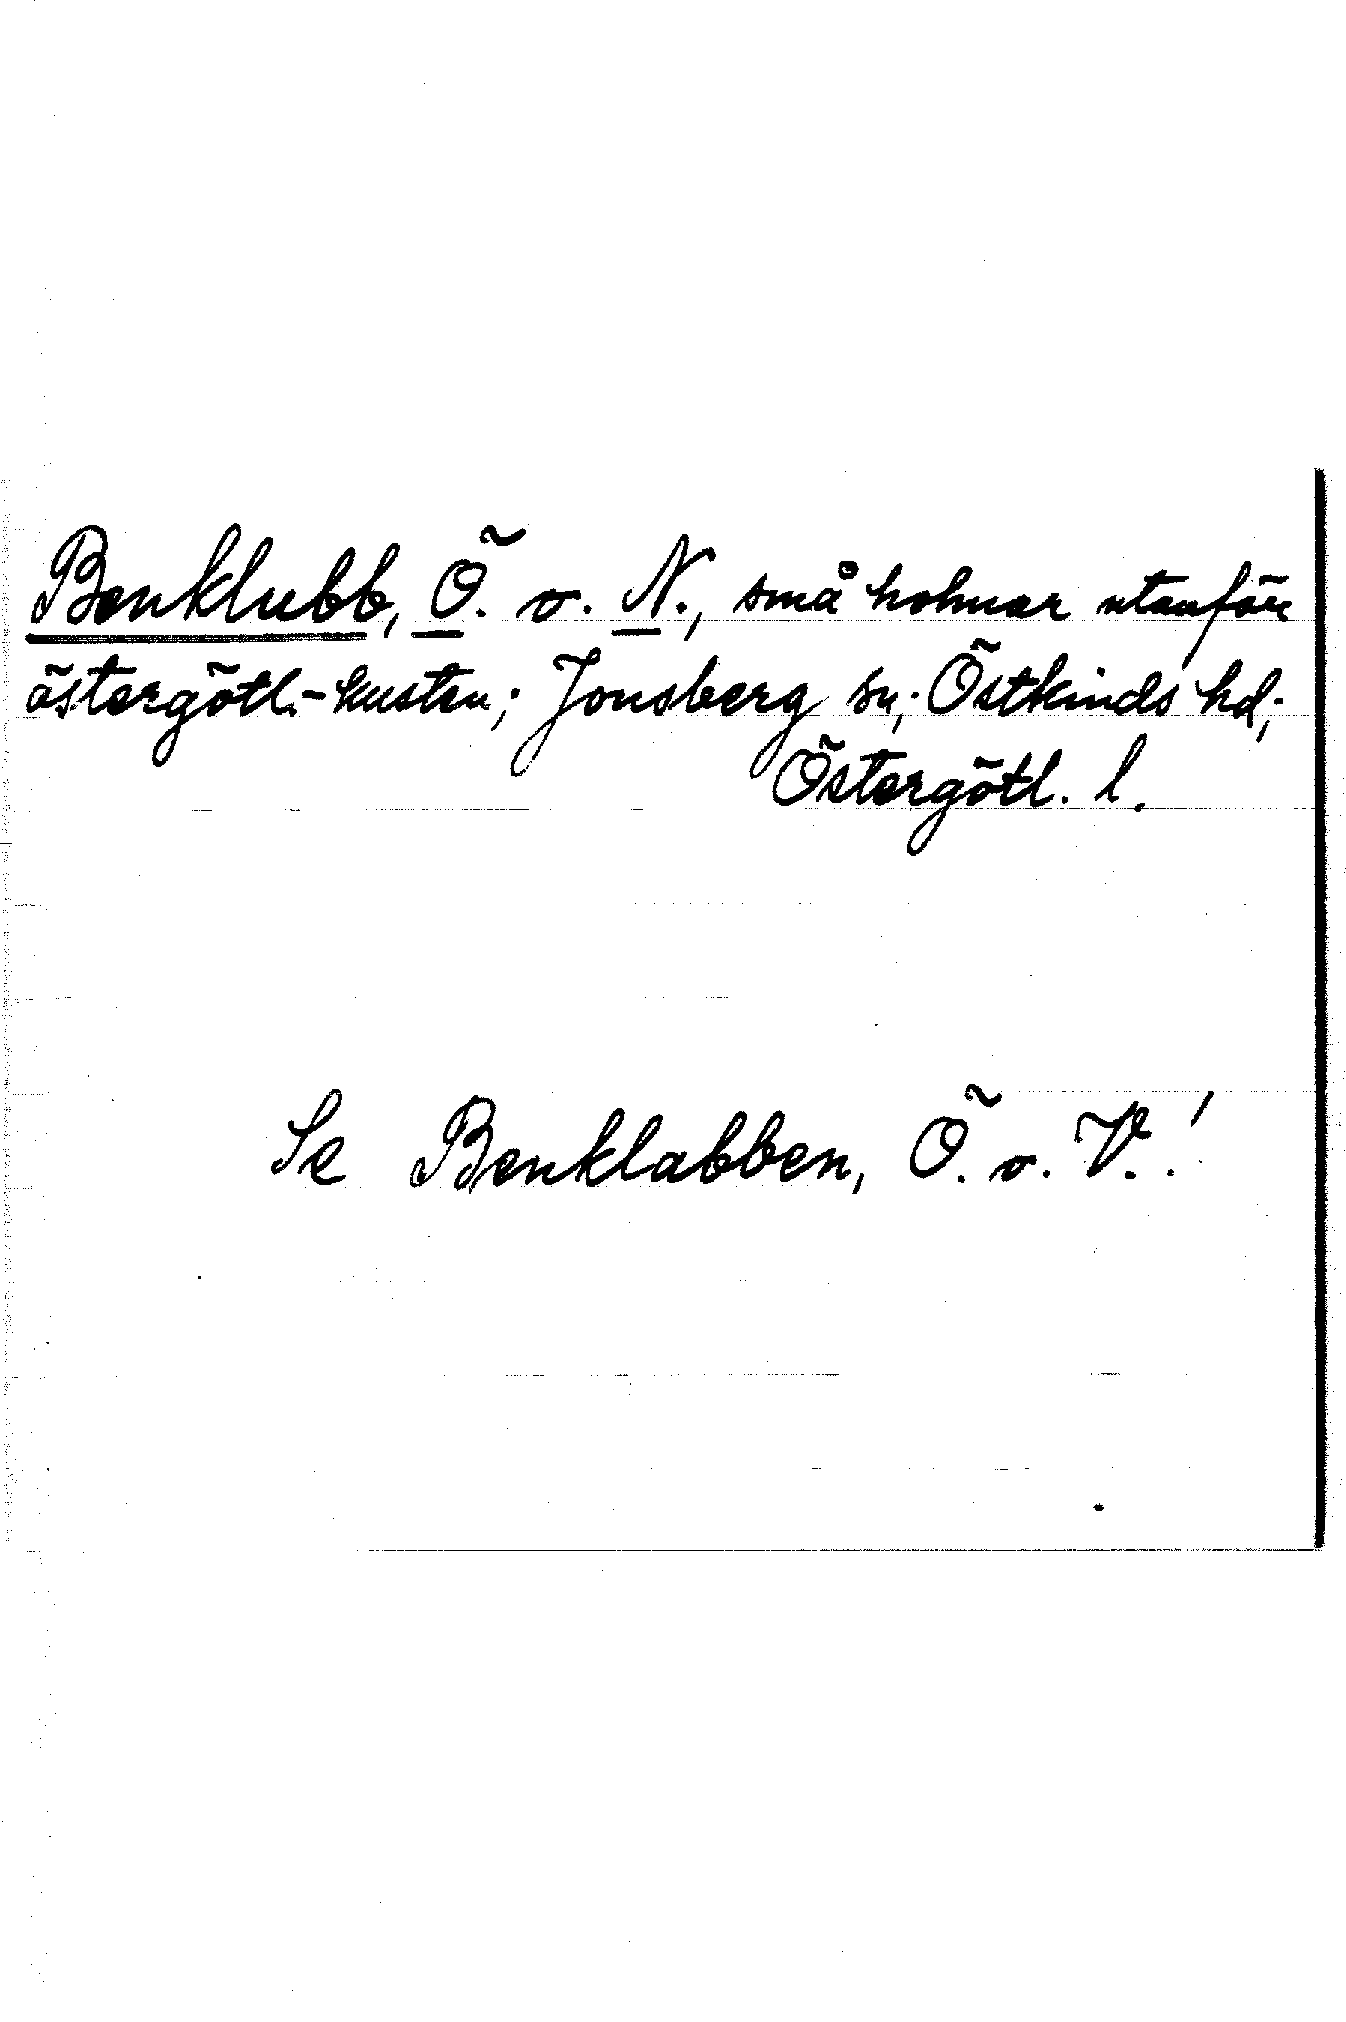 Benklubb, Ö. o. N., små holmar utanför
östergötl.-kusten; Jonsberg sn; Östkinds hd;
Östergötl. l.
Se Benklabben, Ö. o. V.!